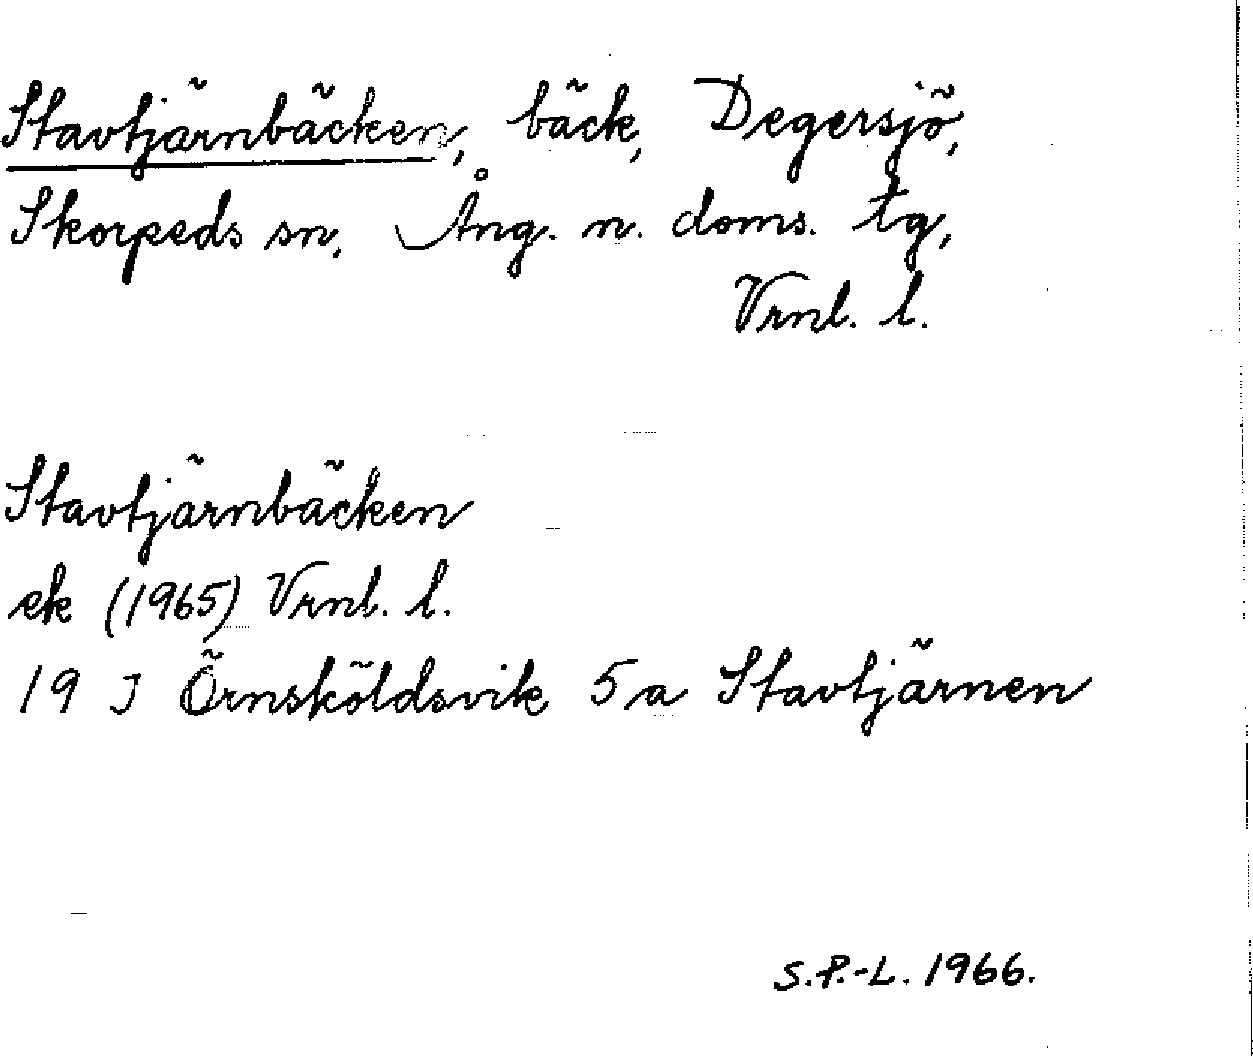 Stavtjärnbäcken, bäck, Degersjö,
Skorpeds sn, Ång. n. doms. tg,
Vrnl. l.
Stavtjärnbäcken
ek (1965) Vrnl. l.
19 J Örnsköldsvik 5 a Stavtjärnen
S.P.-L. 1966.